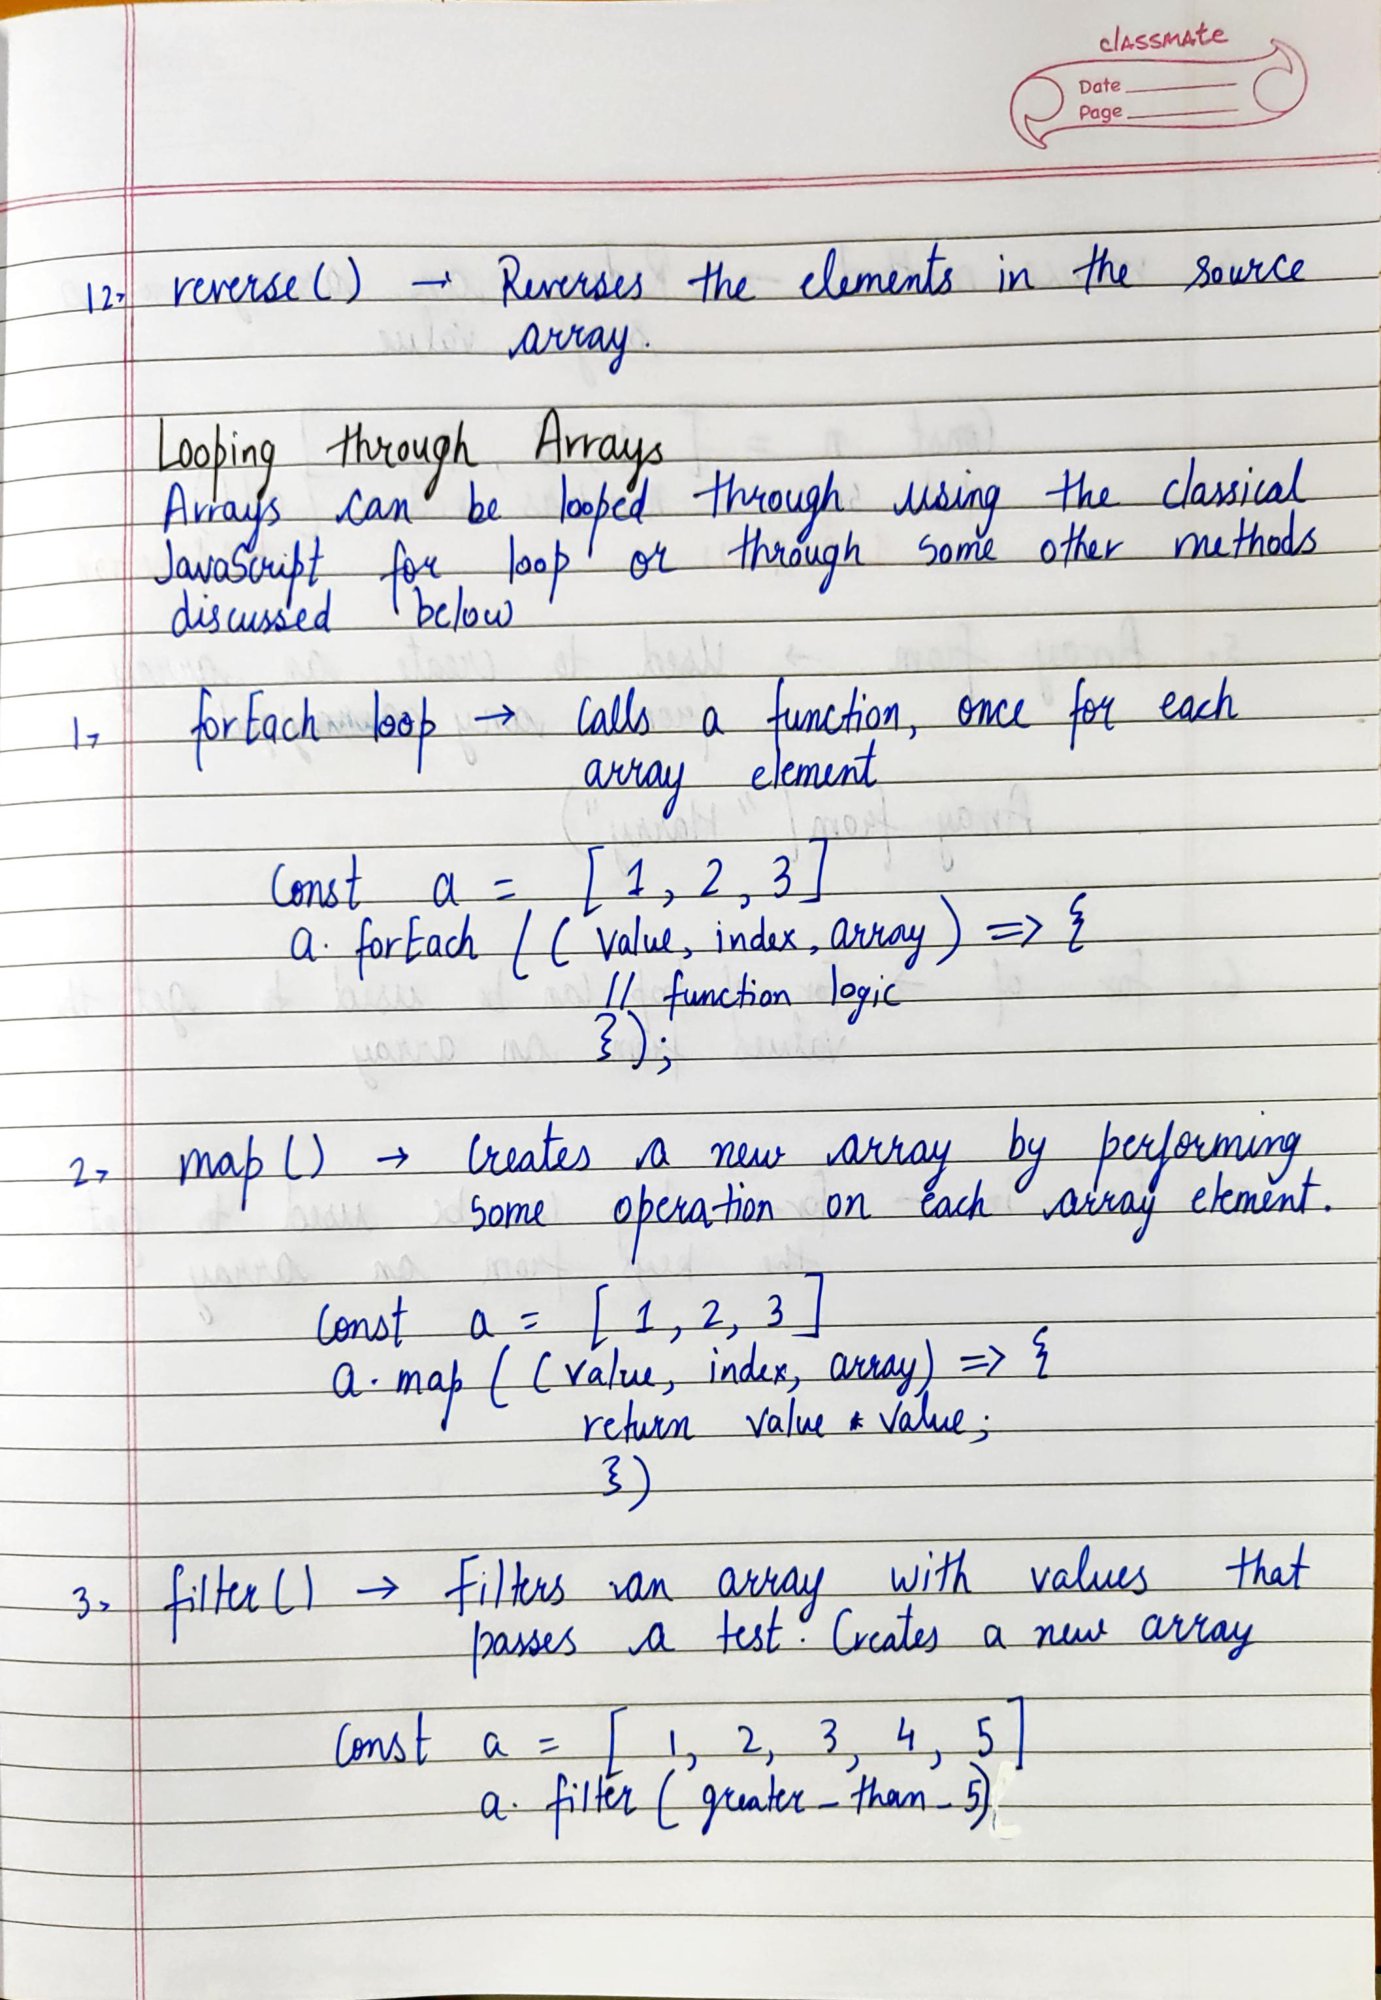 classmate
Date
Page
12, reverse() → Reverses the elements in the source
array.
Looping through Arrays
Arrays can be looped through using the classical
JavaScript for loop or through some other methods
discussed below
1, forEach loop → Calls a function, once for each
array element
Const a = [1, 2, 3]
a. forEach ((value, index, array) => {
// function logic
});
2, map() → Creates a new array by performing
some operation on each array element.
Const a = [1, 2, 3]
a. map ((value, index, array) => {
return value * value;
})
3, filter() → Filters an array with values that
passes a test. Creates a new array
Const a = [1, 2, 3, 4, 5]
a. filter (greater_than_5)